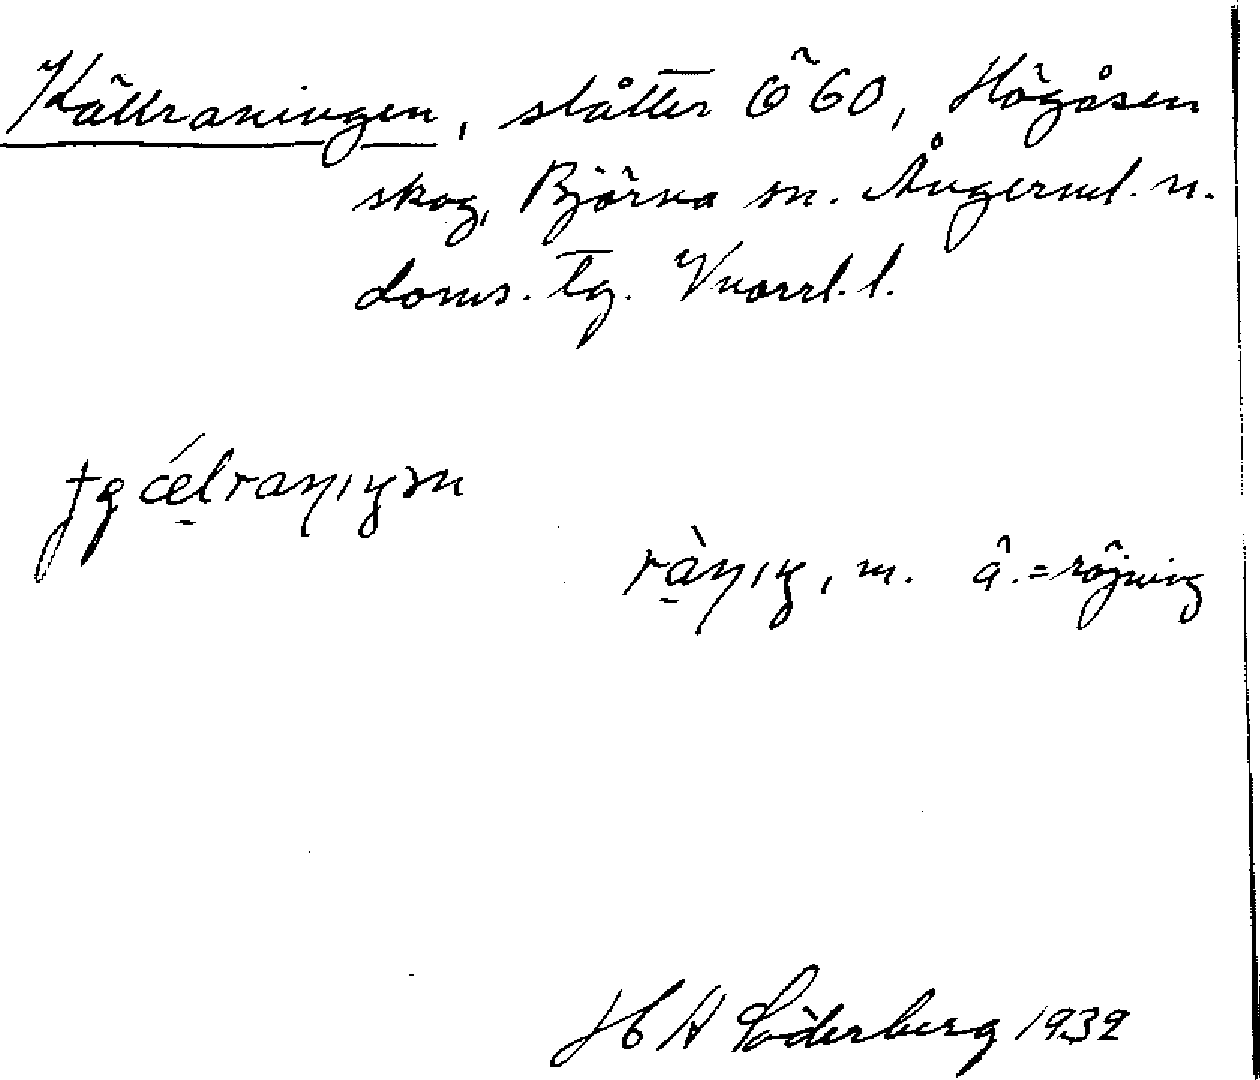 Källraningen, slåtter Ö 60, Högåsen
skog, Björna sn. Ångerml. n.
doms. tg. Vnorrl. l.
ràŋıŋ, m. â. = röjning
H A Söderberg 1932